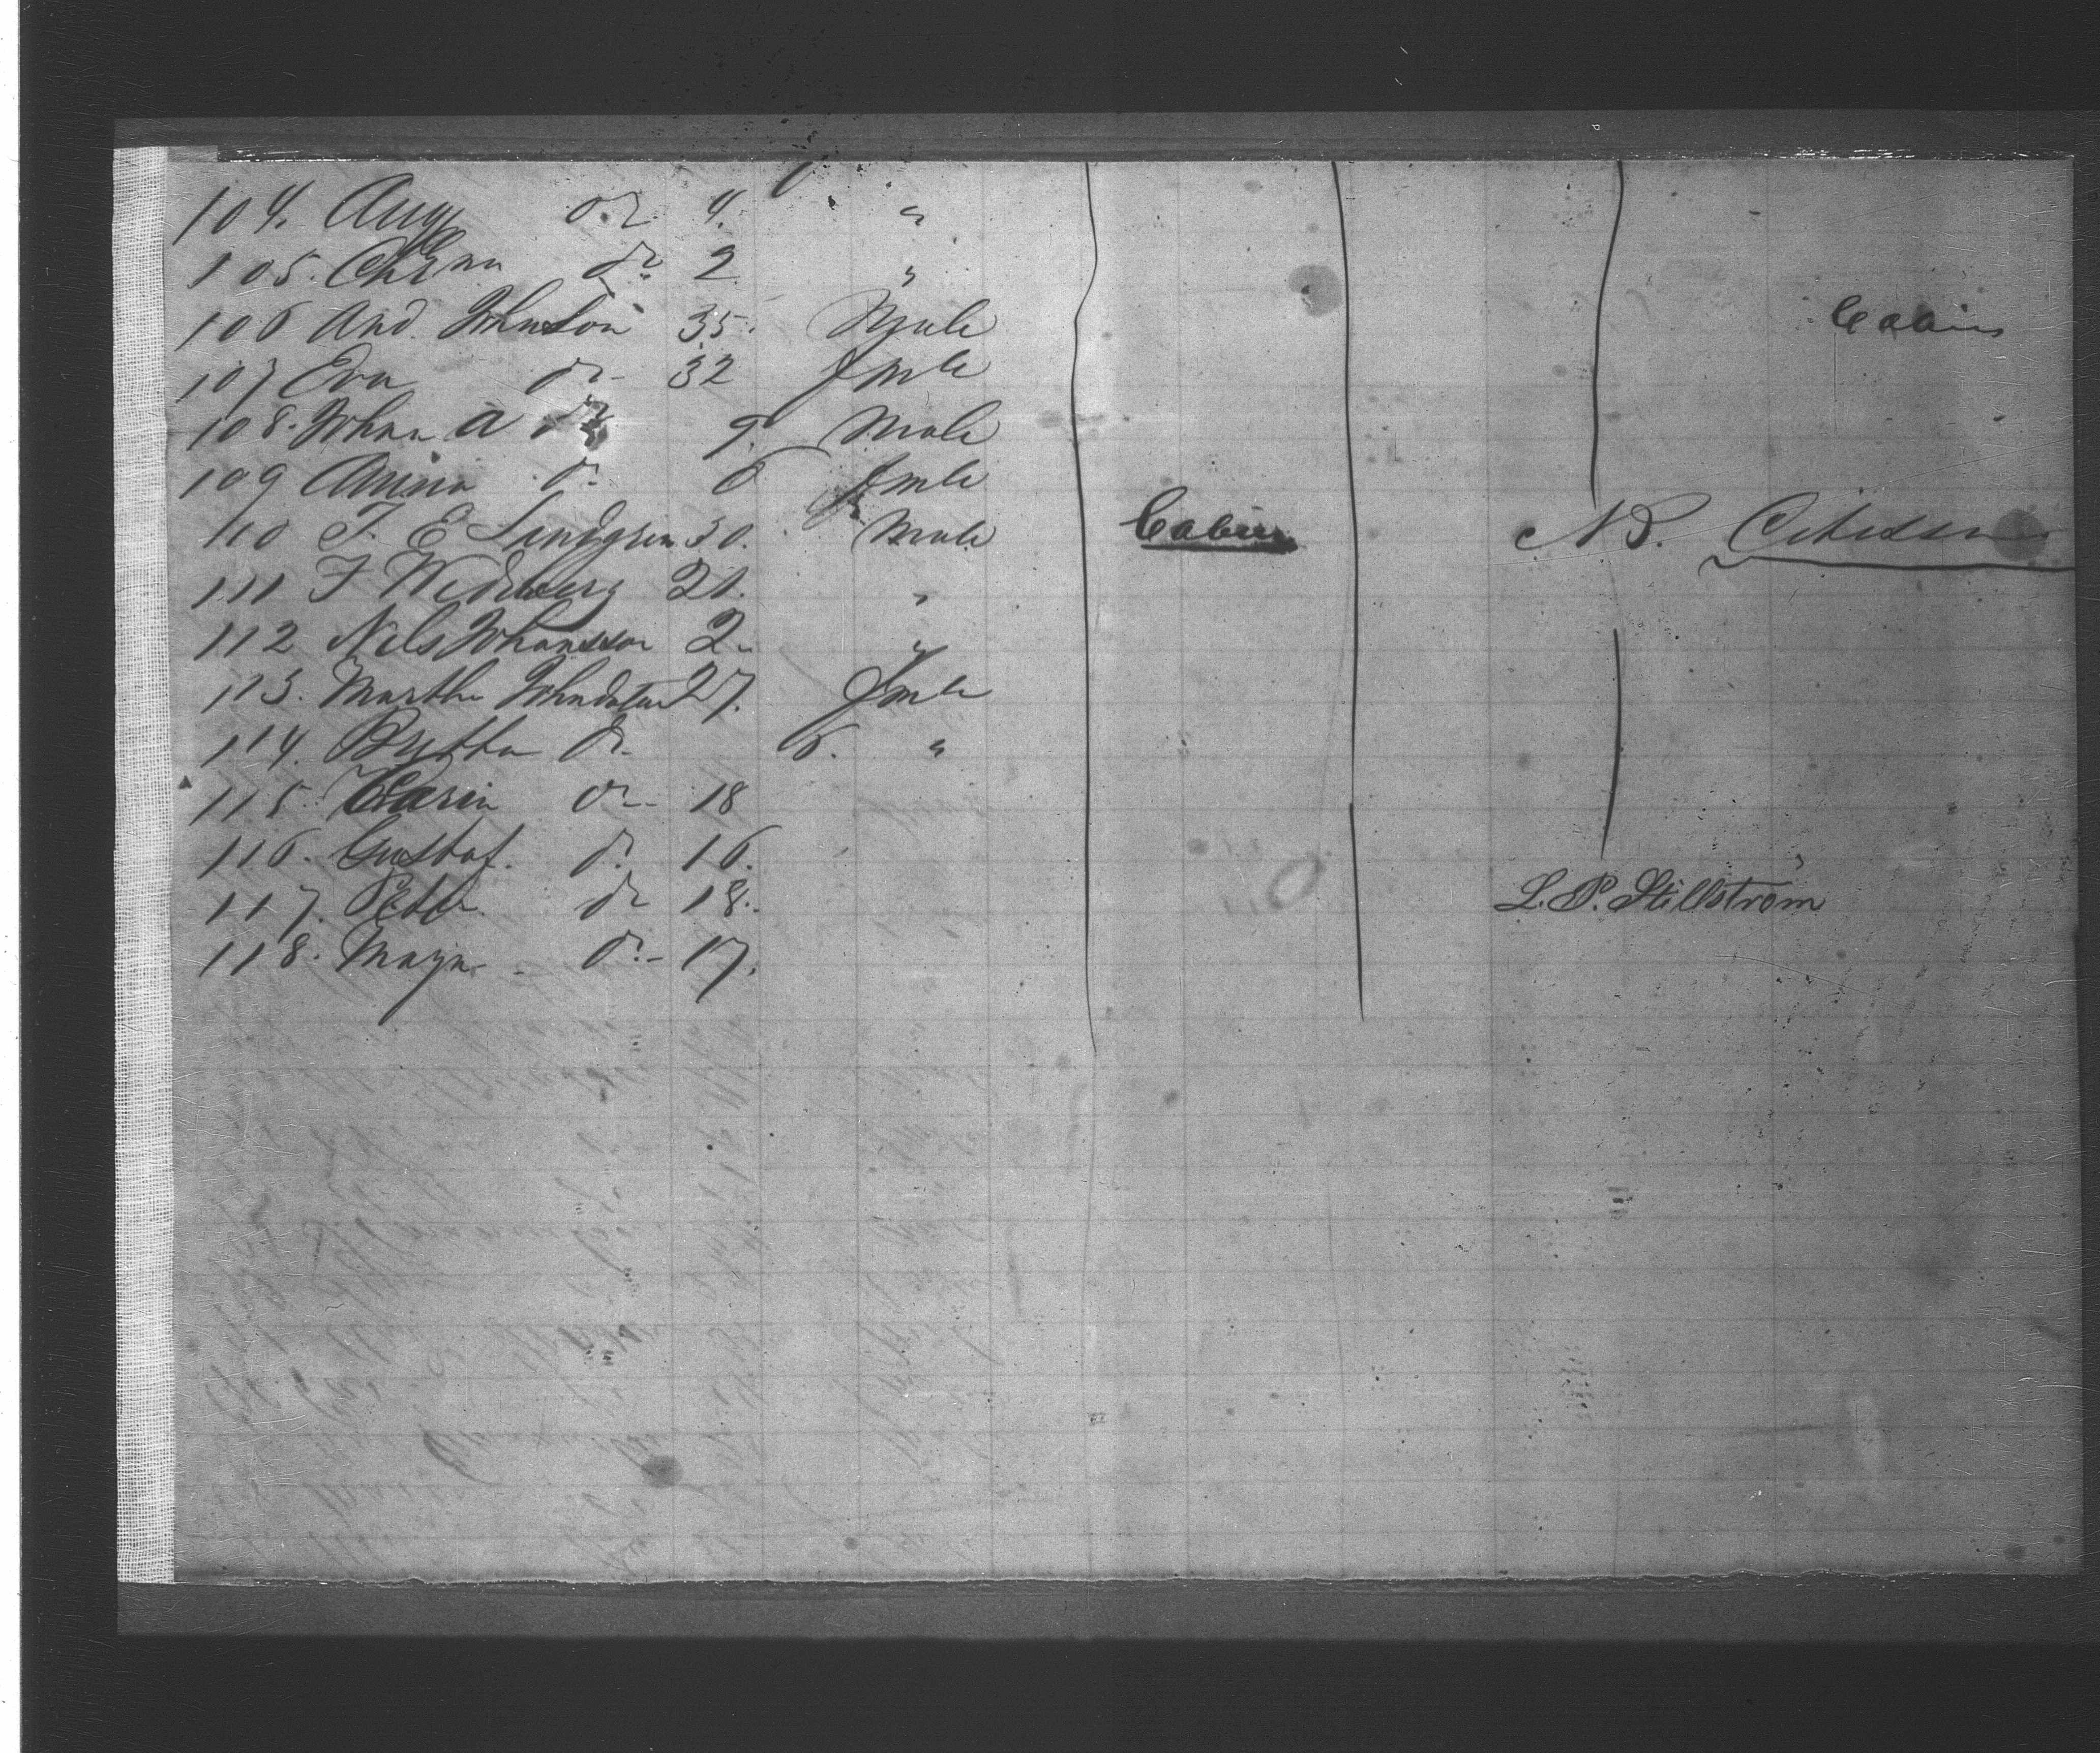 104. Aug do 4. "
105. Chrna do 2 "
106 And. Johnson 35. Male Cabin
107 Eva do 32 Fmle
108. Johan A do 9. Male
109 Anna do 6 Fmle
110 J. E Lindgren 30. Male Cabin N S. Citizen
111 J Wedberg 20. "
112 Nils Johansson 2 "
113. Martha Johndoter 27. Fmle
114. Brytta do 6. "
115. Karin do 18
116. Gustaf. do 16.
117. Peter do 18. L. P. Stillström
118. Maya do 17.